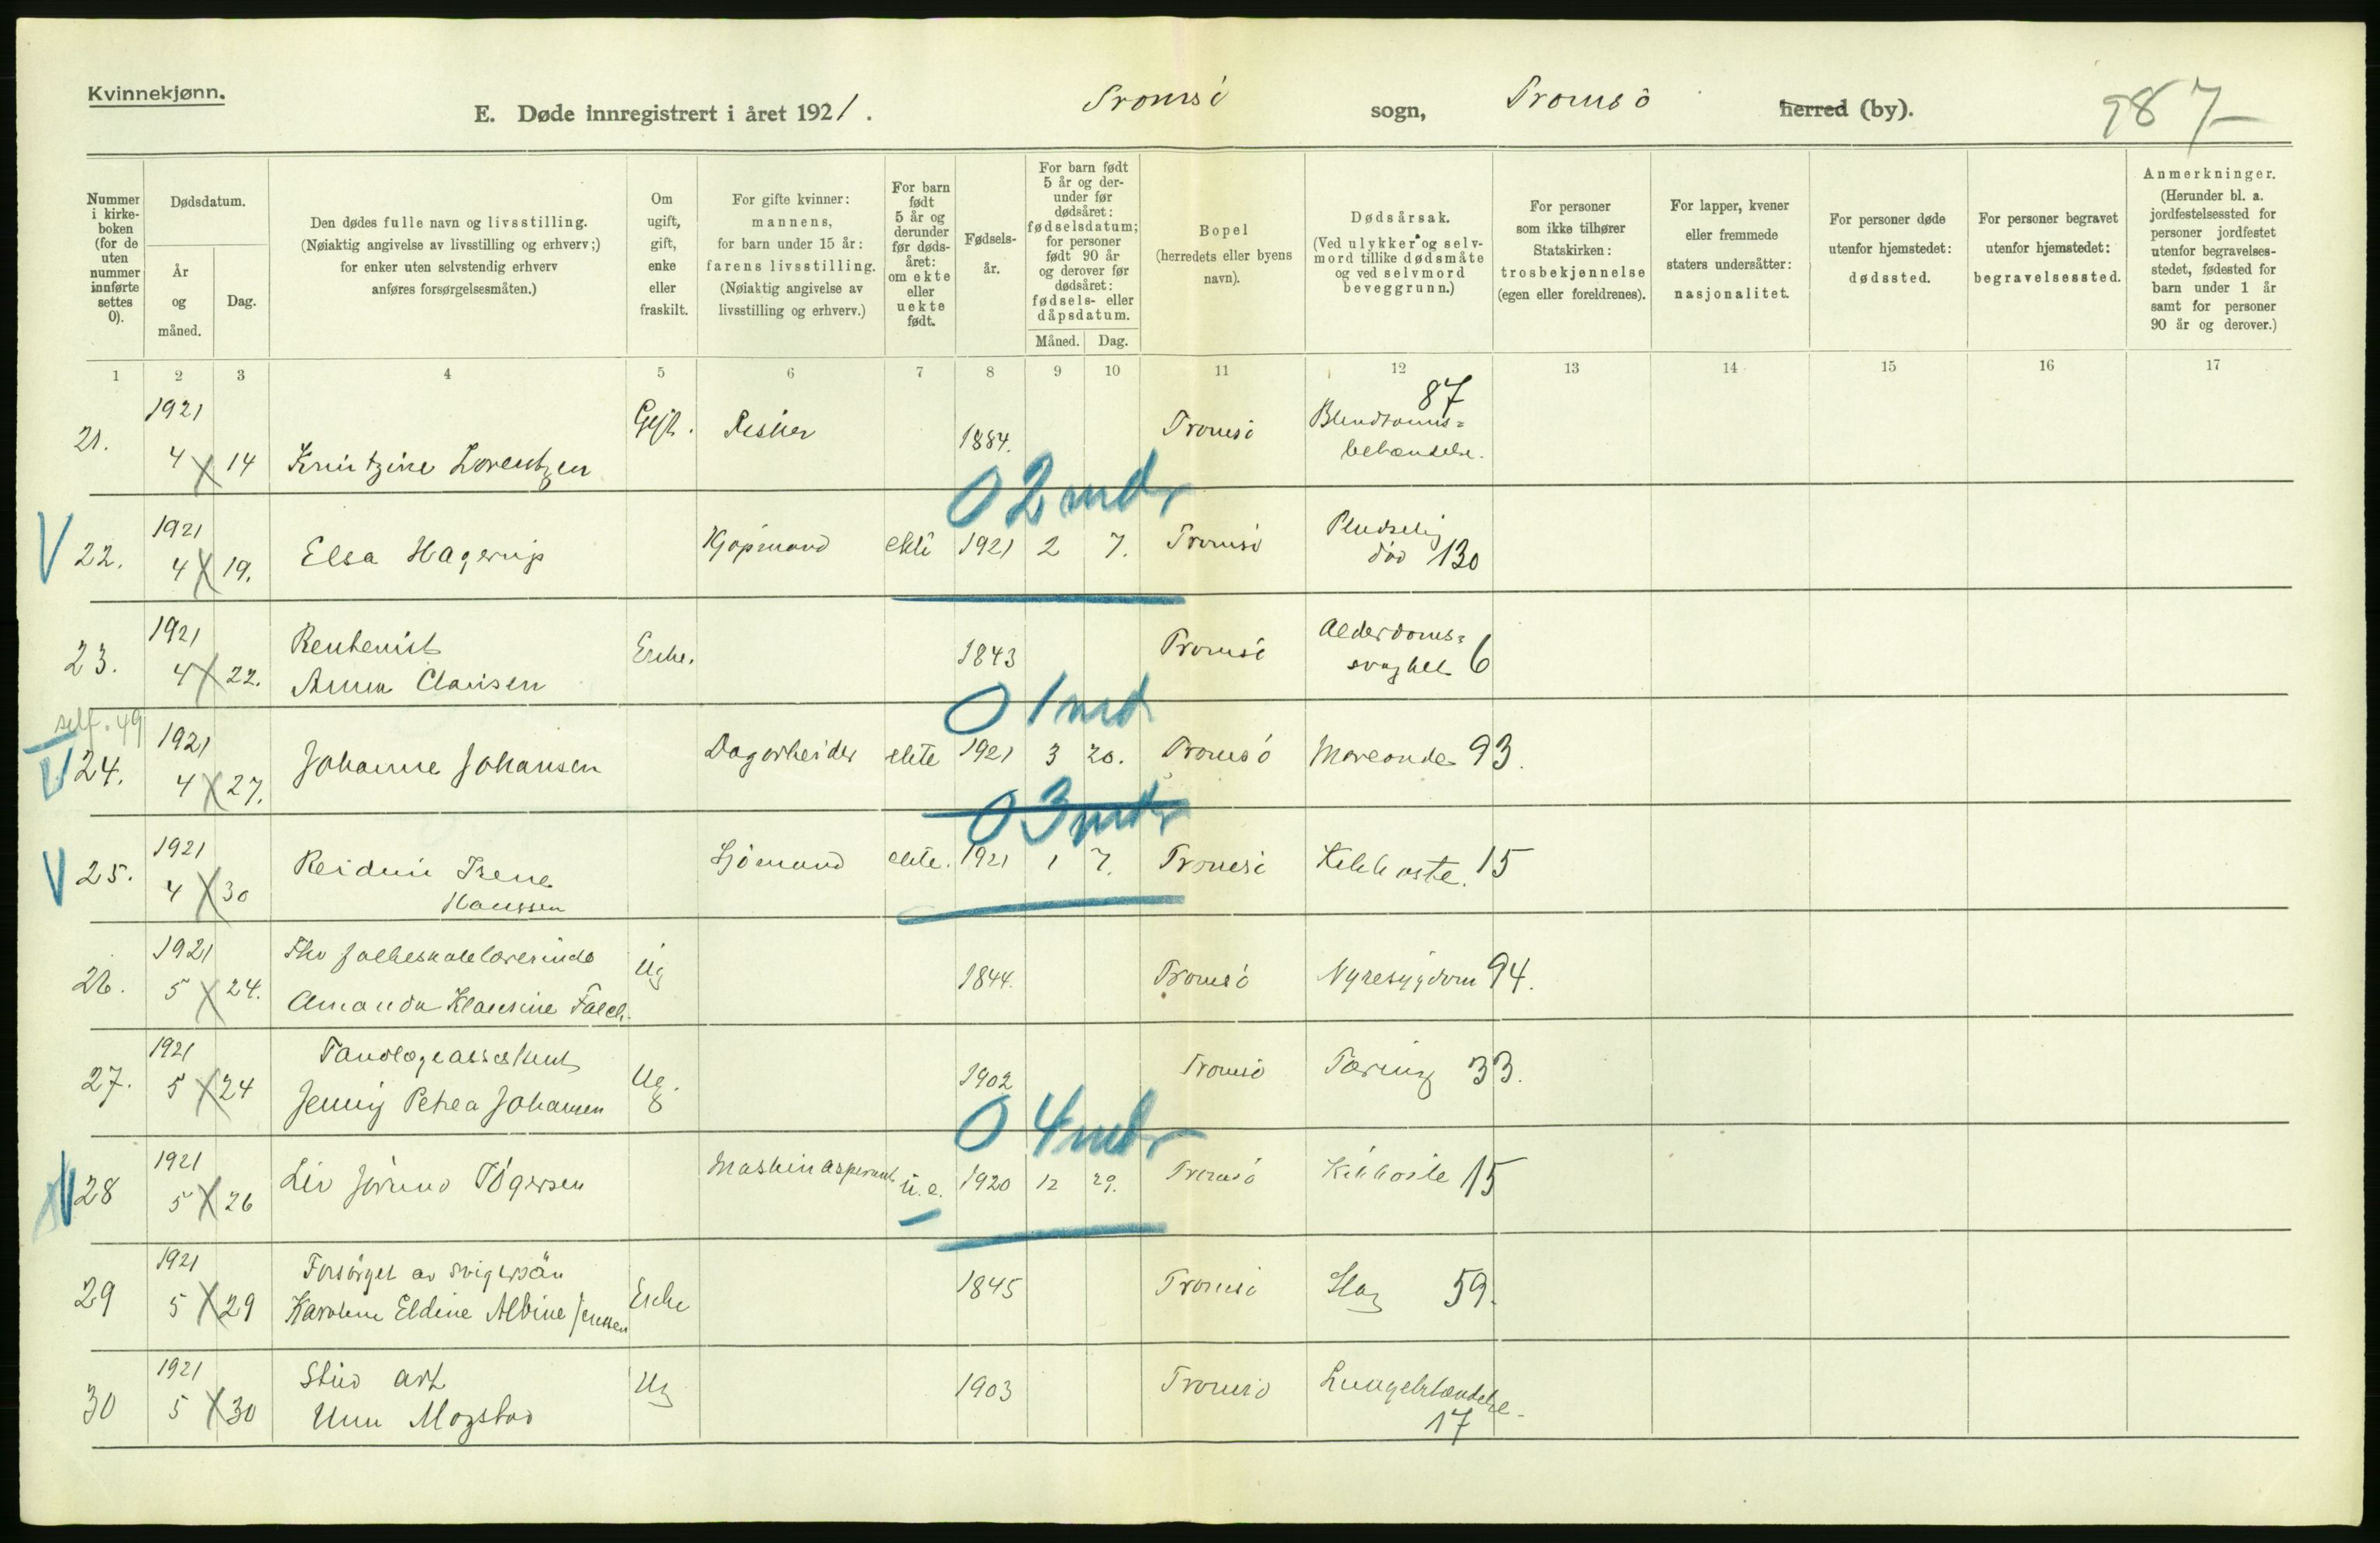 Kvinnekjønn.
E. Døde innregistrert i året 1921. Tromsö sogn, Tromsö herred (by). 987
Nummer i kirkeboken (for de uten nummer innførte settes 0).
Dødsdatum.
År og måned.
Dag.
Den dødes fulle navn og livsstilling.
(Nøiaktig angivelse av livsstilling og erhverv;)
for enker uten selvstendig erhverv
anføres forsørgelsesmåten.)
Om ugift, gift, enke eller fraskilt.
For gifte kvinner:
mannens,
for barn under 15 år:
farens livsstilling.
(Nøiaktig angivelse av
livsstilling og erhverv.)
For barn født 5 år og derunder før dødsåret: om ekte eller uekte født.
Fødselsår.
For barn født 5 år og derunder før dødsåret: fødselsdatum; for personer født 90 år og derover før dødsåret: fødsels- eller dåpsdatum.
Måned. Dag.
Bopel
(herredets eller byens
navn).
Dødsårsak.
(Ved ulykker og selv-
mord tillike dødsmåte
og ved selvmord
beveggrunn.)
For personer
som ikke tilhører
Statskirken:
trosbekjennelse
(egen eller foreldrenes).
For lapper, kvener
eller fremmede
staters undersåtter:
nasjonalitet.
For personer døde
utenfor hjemstedet:
dødssted.
For personer begravet
utenfor hjemstedet:
begravelsessted.
Anmerkninger.
(Herunder bl. a.
jordfestelsessted for
personer jordfestet
utenfor begravelses-
stedet, fødested for
barn under 1 år
samt for personer
90 år og derover.)
1 2 3 4 5 6 7 8 9 10 11 12 13 14 15 16 17
21. 1921 4 14 Lorentzen Gift. Fisker 1884. Tromsö 87
02 mdr
V 22. 1921 4 19. Elsa Hagerup Kjöpmand ekte 1921 2 7. Tromsö Pludselig död 130
23. 1921 4 22. Rentenist
Anna Clausen Enke. 1843 Tromsö Alderdoms=
svaghet 6
01 md
V 24. 1921 4 27. Johanne Johansen Dagarbeider ekte 1921 3 20. Tromsö 93.
03 mdr
V 25. 1921 4 30 Reidun Irene
Hanssen Sjömand ekte. 1921 1 7. Tromsö Kikhoste. 15
26. 1921 5 24. Fhv folkeskolelærerinde
Amanda Klausine Falch. Ug 1844. Tromsö Nyresygdom 94.
27. 1921 5 24 Tandlægeassistent
Jenny Petrea Johansen Ug. 1902 Tromsö Tæring 33.
04 mdr
V 28 1921 5 26 Liv Jorunn Tögersen Maskinaspirant u.e. 1920 12 29. Tromsö Kikhoste 15
29 1921 5 29 Forsörget av svigersön
Karoline Eldine Albine Jenssen Enke 1845 Tromsö Slag 59.
30 1921 5 30 Stud art
Unn Mogstad Ug 1903 Tromsö Lungebetændelse.
17